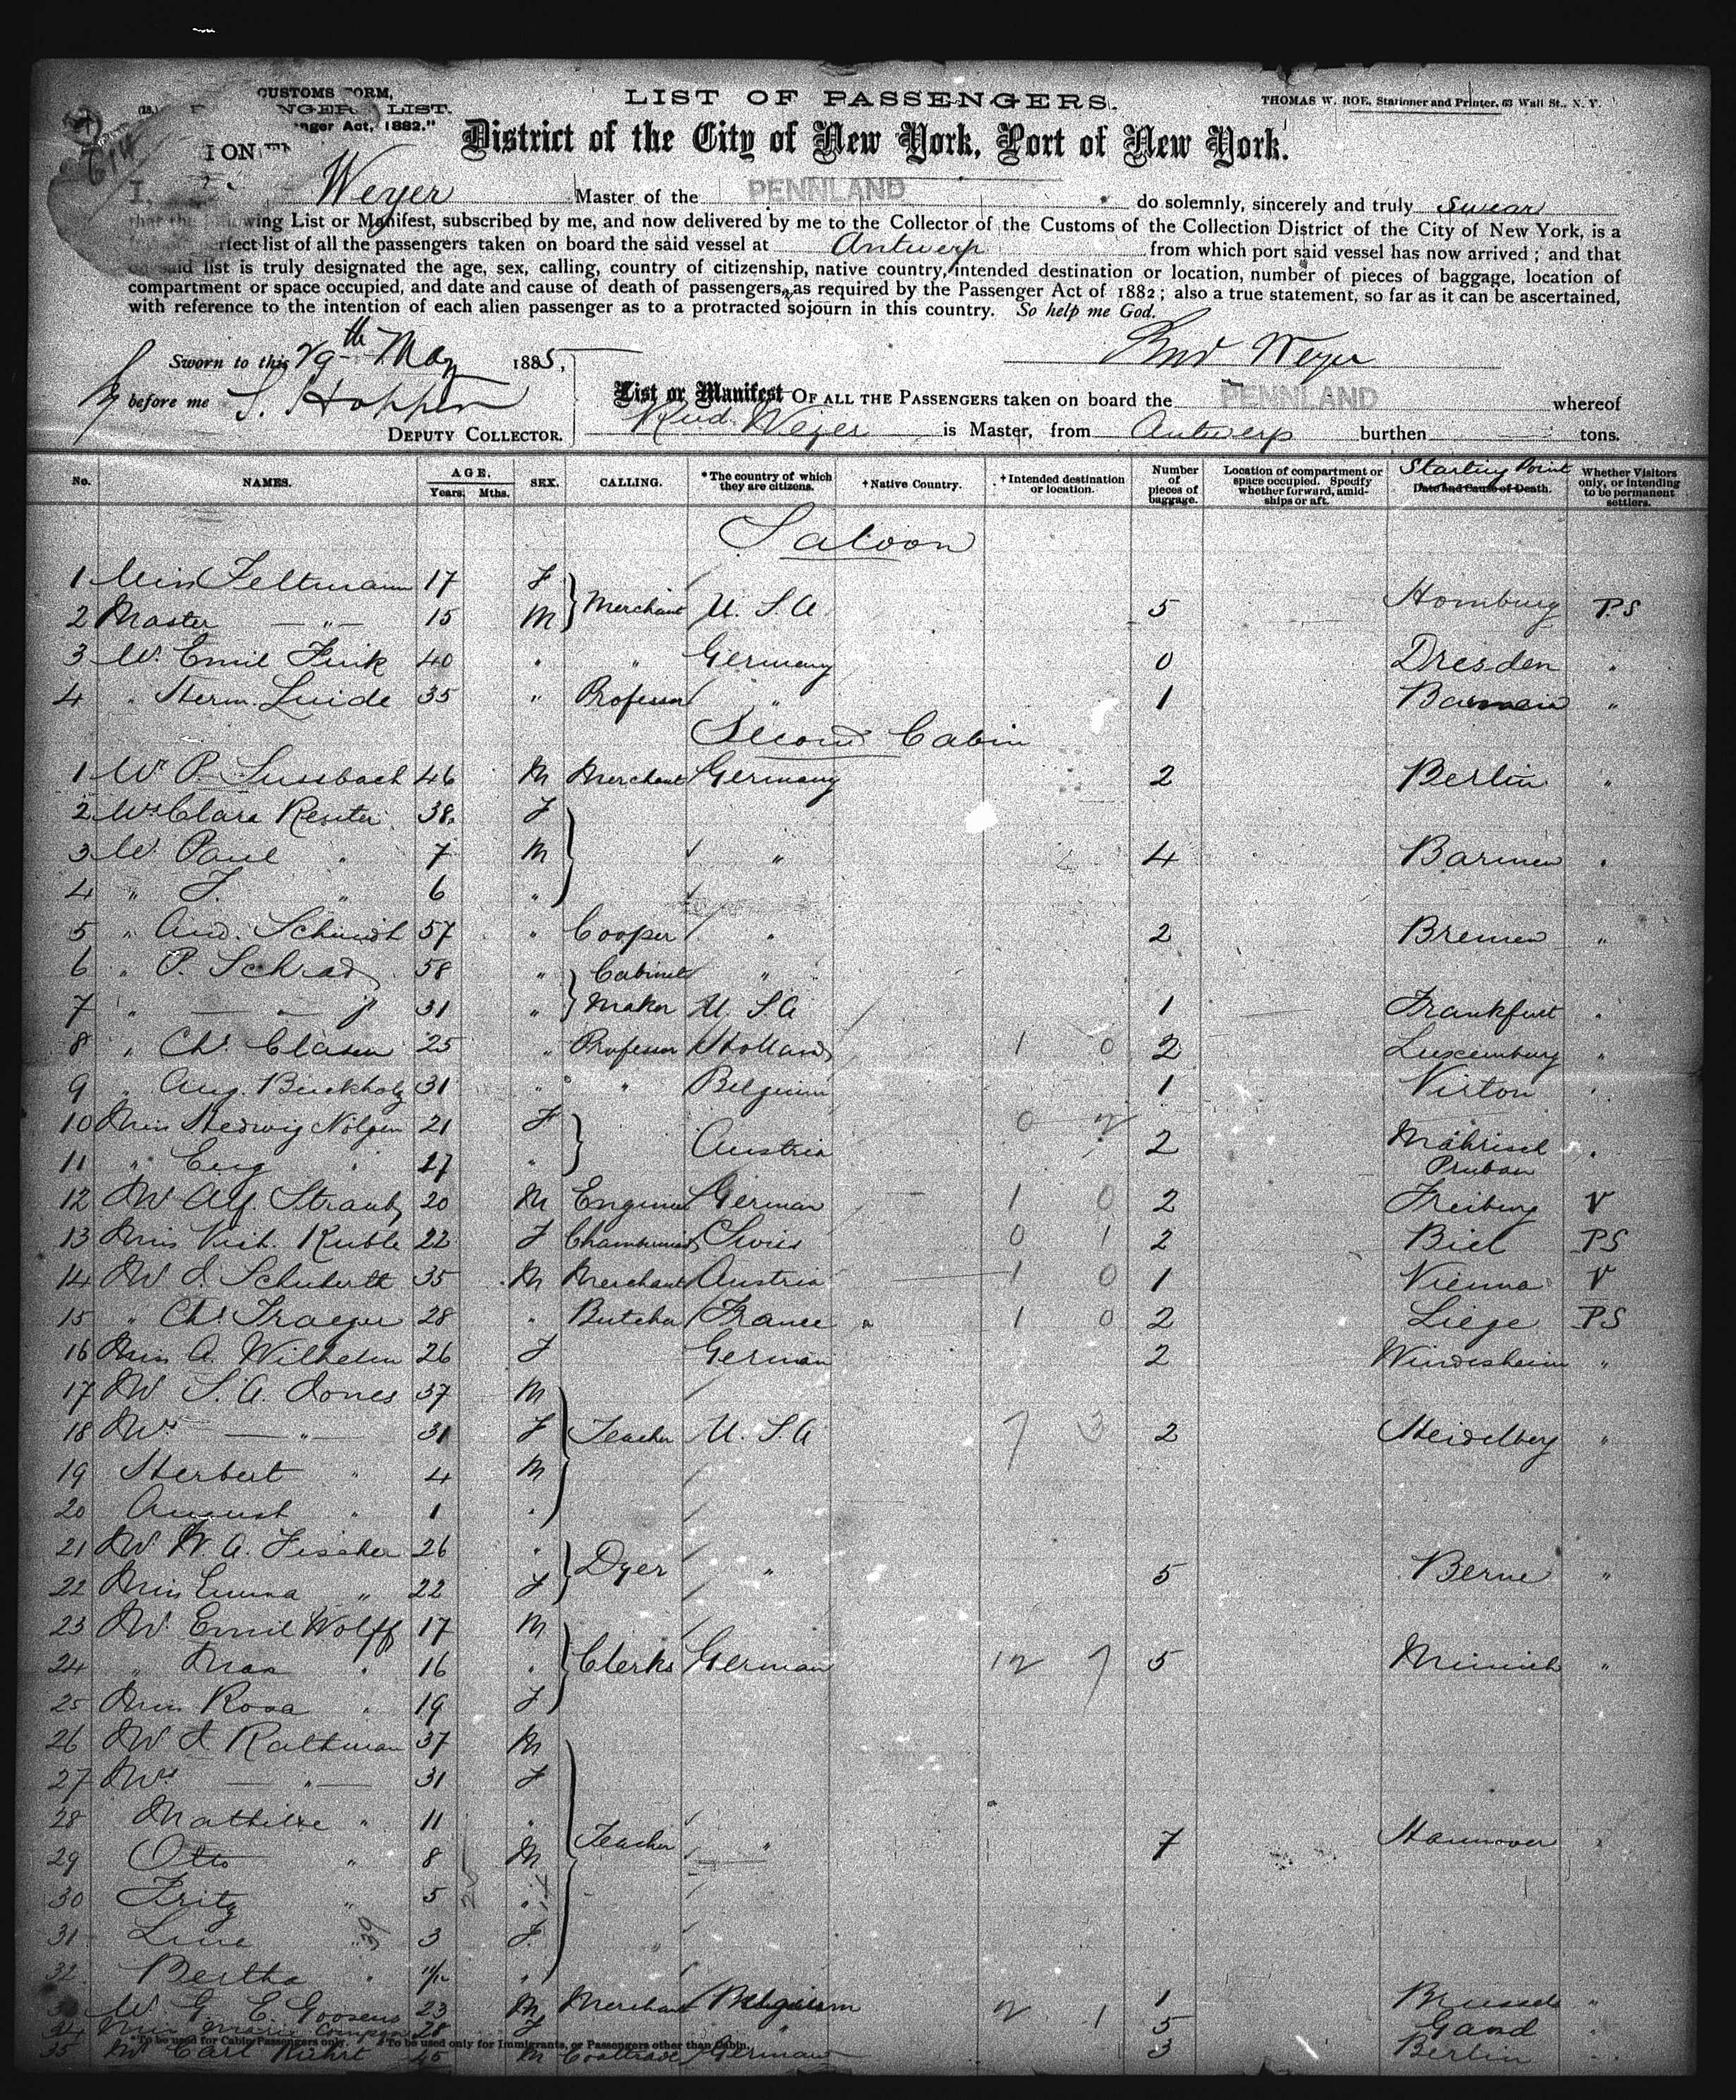 CUSTOMS FORM,
LIST.
nger Act, 1882."
LIST OF PASSENGERS.
THOMAS W. ROE, Stationer and Printer, 63 Wall St., N. Y.
District of the City of New York, Port of New York.
I, Weyer Master of the PENNLAND do solemnly, sincerely and truly swear
that the following List or Manifest, subscribed by me, and now delivered by me to the Collector of the Customs of the Collection District of the City of New York, is a
perfect list of all the passengers taken on board the said vessel at Antwerp from which port said vessel has now arrived; and that
on said list is truly designated the age, sex, calling, country of citizenship, native country, intended destination or location, number of pieces of baggage, location of
compartment or space occupied, and date and cause of death of passengers, as required by the Passenger Act of 1882; also a true statement, so far as it can be ascertained,
with reference to the intention of each alien passenger as to a protracted sojourn in this country. So help me God.
Sworn to this 29th May 1885,
Rud Weyer
before me S. Hoppin
DEPUTY COLLECTOR.
List or Manifest OF ALL THE PASSENGERS taken on board the PENNLAND whereof
Rud. Weyer is Master, from Antwerp burthen tons.
No. NAMES. AGE. Years. Mths. SEX. CALLING. *The country of which they are citizens. †Native Country. †Intended destination or location. Number of pieces of baggage. Location of compartment or space occupied. Specify whether forward, amidships or aft. Starting Point Date and Cause of Death. Whether Visitors only, or intending to be permanent settlers.
Saloon
1 Miss Feltmann 17 F Merchant U.S.A 5 Homburg PS
2 Master " 15 M
3 Mr. Emil Fink 40 " " Germany 0 Dresden "
4 " Herm. Luide 35 " Professor " 1 Barmen "
Second Cabin
1 Mr P. Sussbach 46 M Merchant Germany 2 Berlin "
2 Mrs Clara Reuter 38 F
3 Mr. Paul " 7 M " 4 Barmen "
4 " F. " 6 "
5 " And. Schmidt 57 " Cooper " 2 Bremen "
6 " P. Schrad 58 " Cabinet "
7 " " jr 31 " Maker U.S.A 1 Frankfurt "
8 " Chs. Clasen 25 " Professor Holland 1 0 2 Luxemburg "
9 " Aug. Buckholz 31 " " Belgium 1 Virton "
10 Miss Hedwig Nölgen 21 F Austria 0 2 2 Mährisch
11 " Eug " 17 " "
12 Mr Alf. Straub 20 M Engineer German 1 0 2 Freiburg V
13 Miss Vict. Kuble 22 F Chambermaid Swiss 0 1 2 Biel PS
14 Mr J. Schuberth 35 M Merchant Austria 1 0 1 Vienna V
15 " Chs. Traeger 28 " Butcher France 1 0 2 Liege PS
16 Miss A. Wilhelm 26 F German 2 Windesheim "
17 Mr S. A. Jones 37 M
18 Mrs " 31 F Teacher U.S.A 7 3 2 Heidelberg "
19 Herbert " 4 M
20 August " 1 "
21 Mr W. A. Fischer 26 " Dyer " 5 Berne "
22 Miss Emma " 22 F
23 Mr. Emil Wolff 17 M
24 " Max " 16 " Clerks German 12 7 5 Munich "
25 Miss Rosa " 19 F
26 Mr J. Rathman 37 M
27 Mrs " 31 F
28 Mathilde " 11 "
29 Otto " 8 M Teacher " 7 Hannover "
30 Fritz " 5 "
31 Line " 3 F.
32 Bertha " 11/12 "
33 Mr. G. E. Goosens 23 M Merchant Belgium 2 1 1 Brussels "
34 Miss Marie 28 F " 5 Gand "
*To be used for Cabin Passengers only. †To be used only for Immigrants, or Passengers other than Cabin.
35 Mr Carl Kührt 45 M German 3 Berlin "